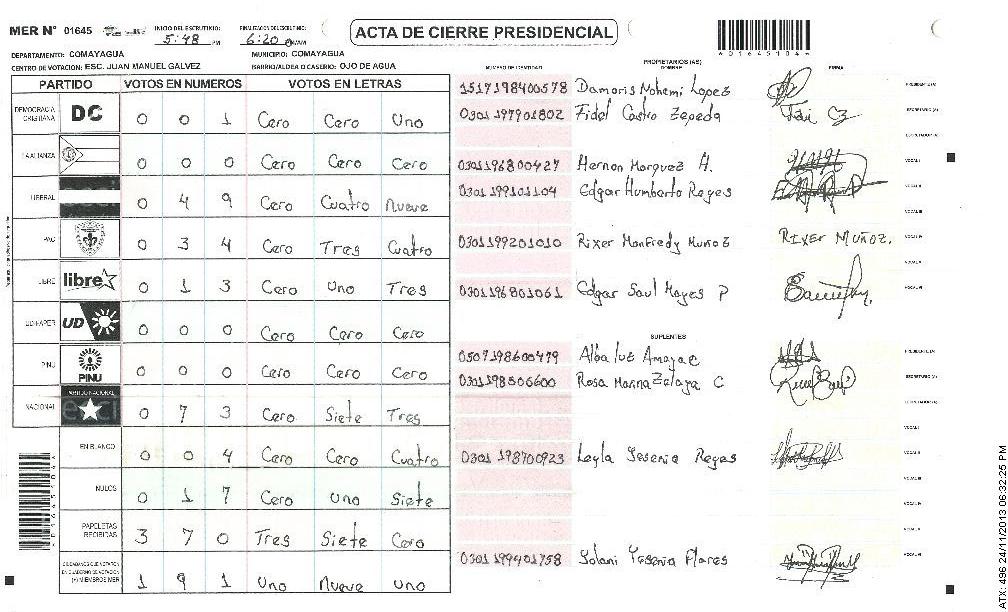 MER Nº 01645 INICIO DEL ESCRUTINIO: 5:48 PM FINALIZACION DEL ESCRUTINIO: 6:20 ACTA DE CIERRE PRESIDENCIAL
DEPARTAMENTO: COMAYAGUA MUNICIPIO: COMAYAGUA
CENTRO DE VOTACION: ESC. JUAN MANUEL GALVEZ BARRIO/ALDEA O CASERIO: OJO DE AGUA
PARTIDO VOTOS EN NUMEROS VOTOS EN LETRAS
DEMOCRACIA CRISTIANA DC 0 0 1 Cero Cero Uno
LA ALIANZA 0 0 0 Cero Cero Cero
LIBERAL 0 4 9 Cero Cuatro Nueve
PAC 0 3 4 Cero Tres Cuatro
LIBRE libre 0 1 3 Cero Uno Tres
UD-FAPER UD 0 0 0 Cero Cero Cero
PINU PINU 0 0 0 Cero Cero Cero
NACIONAL PARTIDO NACIONAL 0 7 3 Cero Siete Tres
EN BLANCO 0 0 4 Cero Cero Cuatro
NULOS 0 1 7 Cero Uno Siete
PAPELETAS RECIBIDAS 3 7 0 Tres Siete Cero
CIUDADANOS QUE VOTARON EN CUADERNO DE VOTACION (+) MIEMBROS MER 1 9 1 Uno Nueve Uno
A01645104A
PROPIETARIOS (AS)
NUMERO DE IDENTIDAD NOMBRE FIRMA
1517198400578 Damaris Nohemi Lopez PRESIDENTE (A)
0301197901802 Fidel Castro Zepeda SECRETARIO (A)
ESCRUTADOR (A)
0301196800427 Hernan Marquez H. VOCAL I
0301199101104 Edgar Humberto Reyes VOCAL II
VOCAL III
0301199201010 Rixer Manfredy Muñoz RIXER MUÑOZ. VOCAL IV
VOCAL V
0301196801061 Edgar Saul Mayes P VOCAL VI
SUPLENTES
0507198600479 Alba Luz Amaya C PRESIDENTE (A)
0301198506600 Rosa Marina Zelaya C SECRETARIO (A)
ESCRUTADOR (A)
VOCAL I
0301198700923 Leyla Yesenia Reyes VOCAL II
VOCAL III
VOCAL IV
VOCAL V
0301199401758 Yolani Yesenia Flores VOCAL VI
ATX: 496 24/11/2013 06:32:25 PM